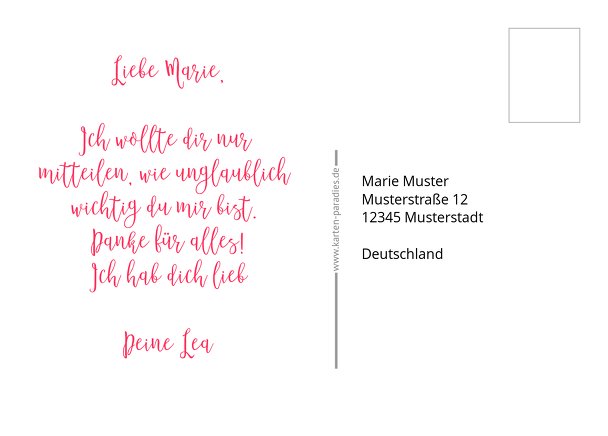 Liebe Marie,
Ich wollte dir nur
mitteilen, wie unglaublich
wichtig du mir bist.
Danke für alles!
Ich hab dich lieb
Deine Lea
www.karten-paradies.de
Marie Muster
Musterstraße 12
12345 Musterstadt
Deutschland